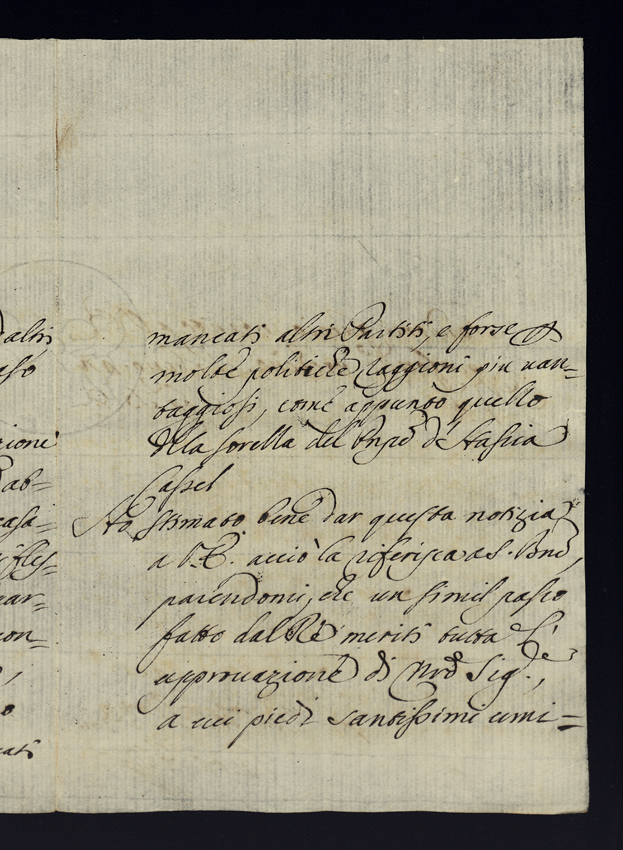 altri
aso
zione
ab=
casa=
ifles=
mar=
con=
,
o
cati
mancati altri Partiti, e forse p
molte politiche raggioni piu uan=
taggiosi, come appunto quello
della sorella del di Hassia
Cassel
Ho stimato bene dar questa notizia
a V. E. acciò la riferisca a S. Bnē,
parendomi, che un simil passo
fatto dal Rè meriti tutta l'
approuazione di Nrō Sig.re,
a cui piedi santissimi umi=